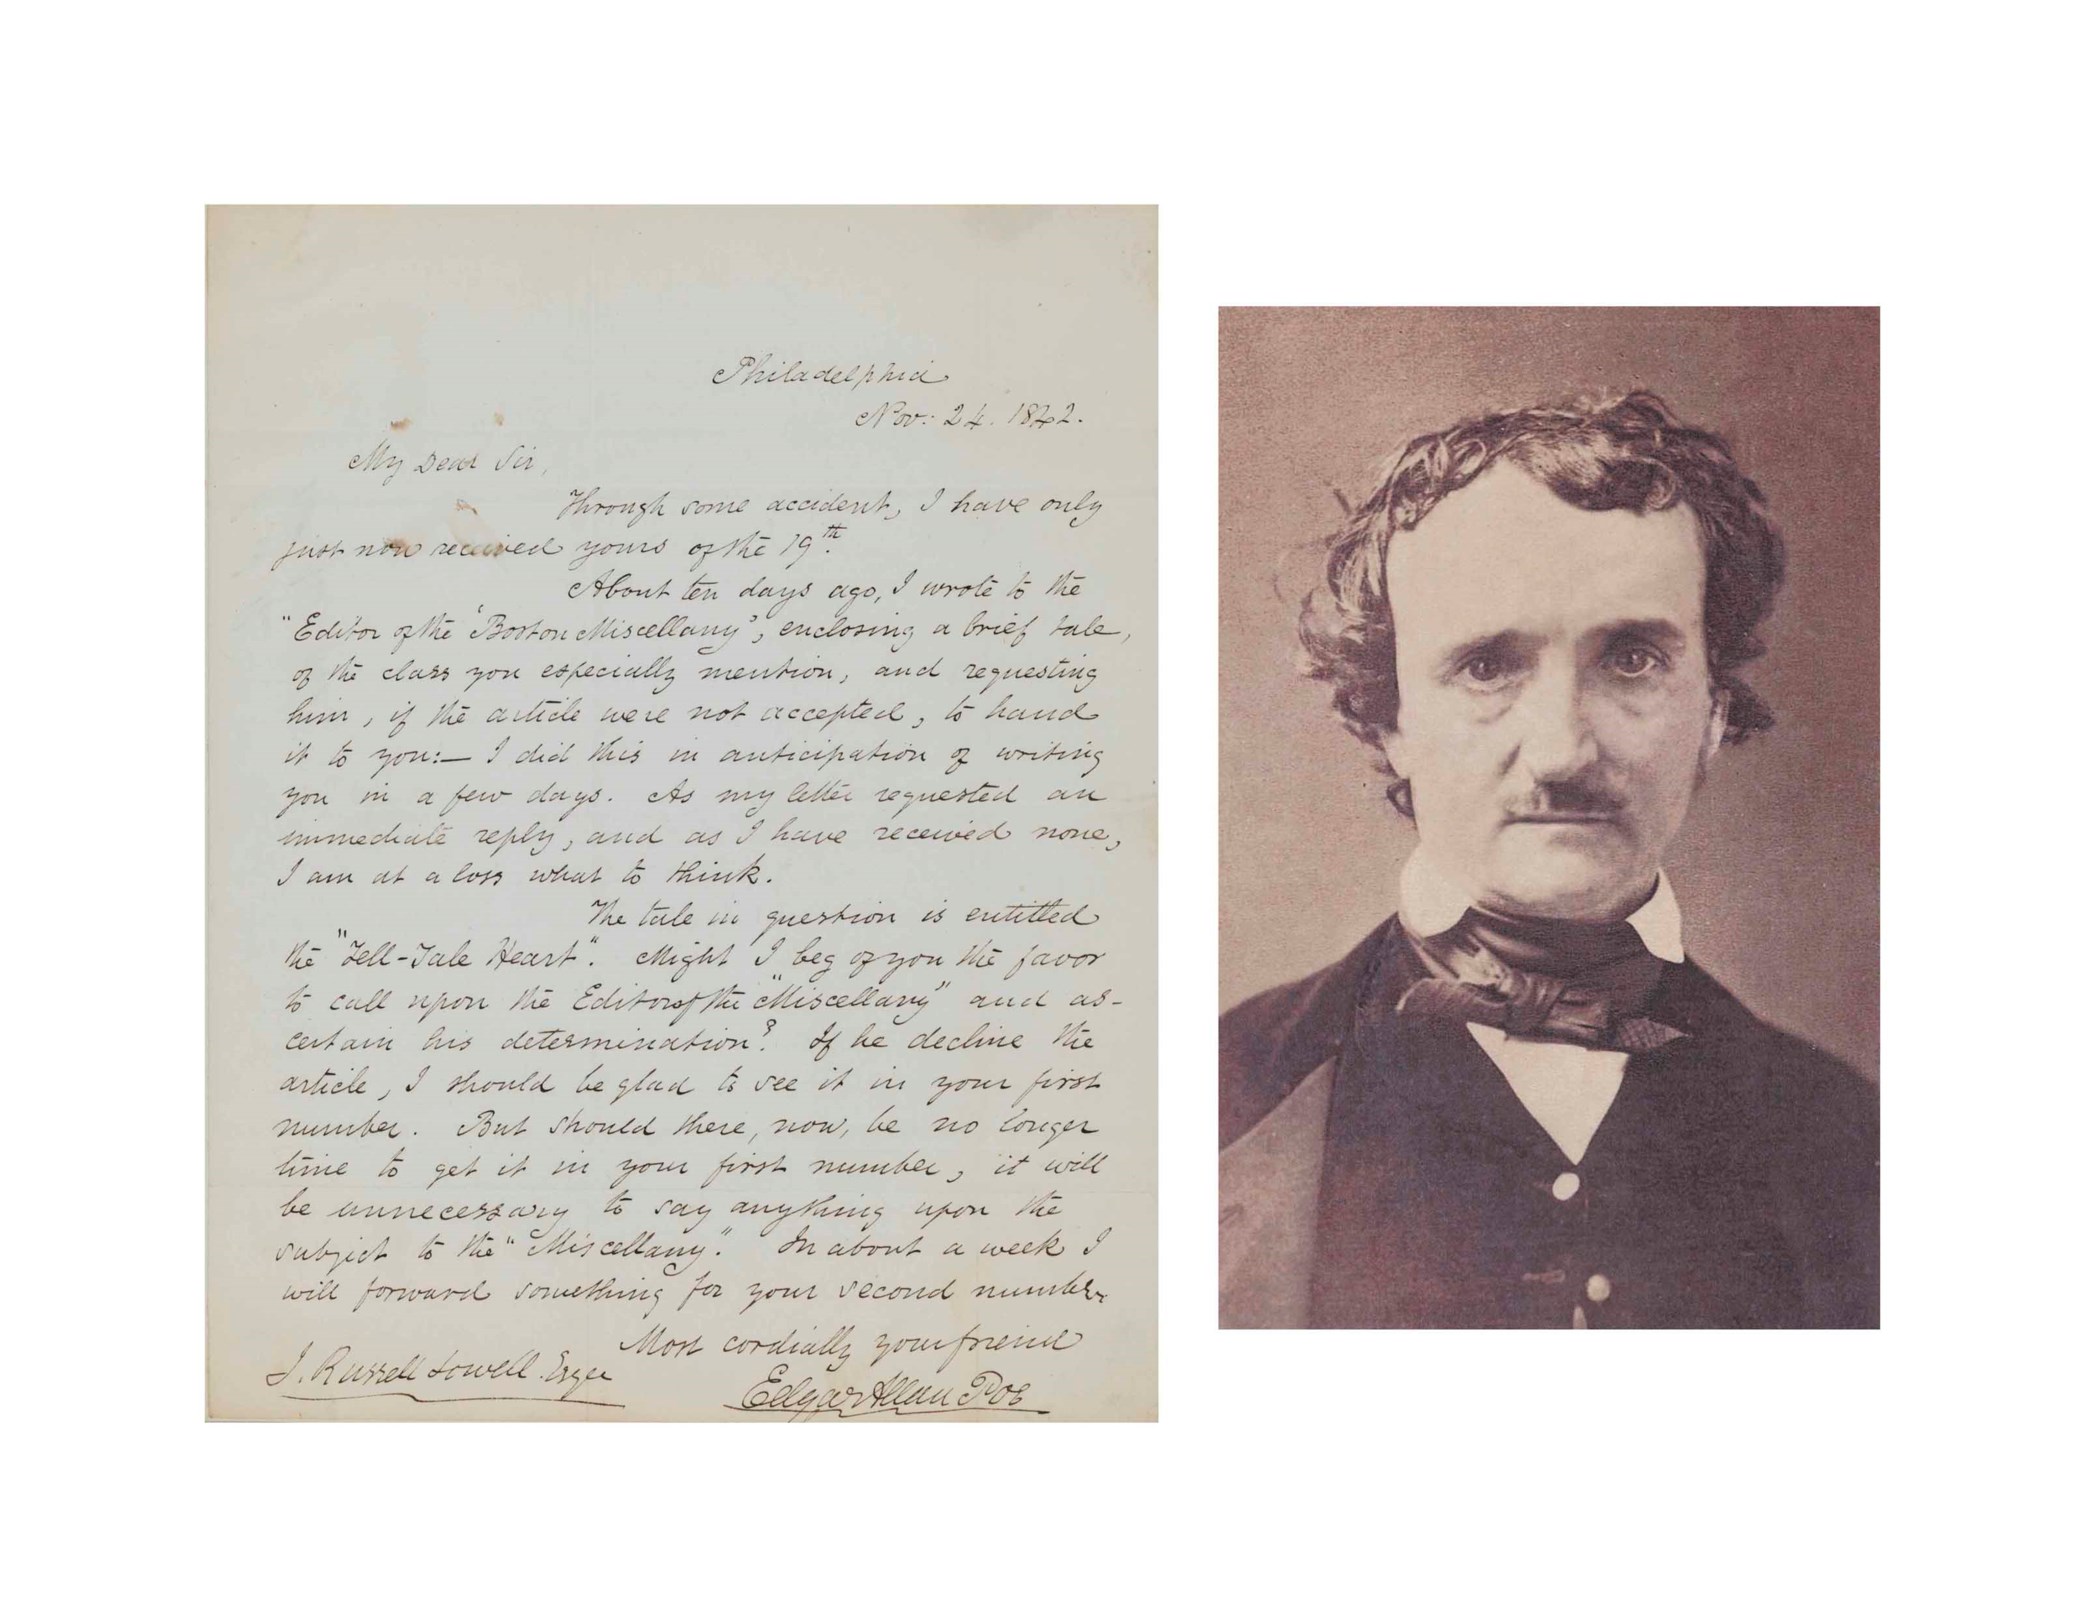 Philadelphia
Nov: 24. 1842.
My Dear Sir,
Through some accident, I have only
just now received yours of the 19th.
About ten days ago, I wrote to the
"Editor of the 'Boston Miscellany', enclosing a brief tale,
of the class you especially mention, and requesting
him, if the article were not accepted, to hand
it to you:— I did this in anticipation of writing
you in a few days. As my letter requested an
immediate reply, and as I have received none,
I am at a loss what to think.
The tale in question is entitled
the "Tell-Tale Heart". Might I beg of you the favor
to call upon the Editor of the "Miscellany" and as-
certain his determination? If he decline the
article, I should be glad to see it in your first
number. But should there, now, be no longer
time to get it in your first number, it will
be unnecessary to say anything upon the
subject to the "Miscellany". In about a week I
will forward something for your second number.
Most cordially your friend
J. Russell Lowell. Esqre
Edgar Allan Poe